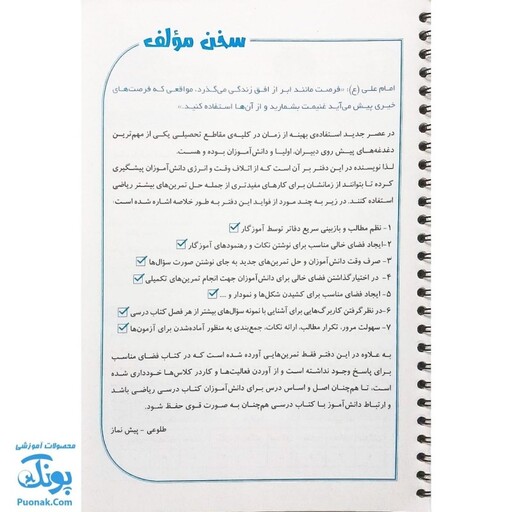 سخن مؤلف
امام علی (ع): «فرصت مانند ابر از افق زندگی می‌گذرد، مواقعی که فرصت‌های
خیری پیش می‌آید غنیمت بشمارید و از آن‌ها استفاده کنید.»
در عصر جدید استفاده‌ی بهینه از زمان در کلیه‌ی مقاطع تحصیلی یکی از مهم‌ترین
دغدغه‌های پیش روی دبیران، اولیا و دانش‌آموزان بوده و هست.
لذا نویسنده در این دفتر بر آن است که از اتلاف وقت و انرژی دانش‌آموزان پیشگیری
کرده تا بتوانند از زمانشان برای کارهای مفیدتری از جمله حل تمرین‌های بیشتر ریاضی
استفاده کنند. در زیر به چند مورد از فواید این دفتر به طور خلاصه اشاره شده است:
۱- نظم مطالب و بازبینی سریع دفاتر توسط آموزگار
۲-ایجاد فضای خالی مناسب برای نوشتن نکات و رهنمودهای آموزگار
۳- صرف وقت دانش‌آموزان و حل تمرین‌های جدید به جای نوشتن صورت سؤال‌ها
۴- در اختیار گذاشتن فضای خالی برای دانش‌آموزان جهت انجام تمرین‌های تکمیلی
۵- ایجاد فضای مناسب برای کشیدن شکل‌ها و نمودار و ...
۶-در نظر گرفتن کاربرگ‌هایی برای آشنایی با نمونه سؤال‌های بیشتر از هر فصل کتاب درسی
۷- سهولت مرور، تکرار مطالب، ارائه نکات، جمع‌بندی به منظور آماده‌شدن برای آزمون‌ها
به علاوه در این دفتر فقط تمرین‌هایی آورده شده است که در کتاب فضای مناسب
برای پاسخ وجود نداشته است و از آوردن فعالیت‌ها و کاردر کلاس‌ها خودداری شده
است، تا هم‌چنان اصل و اساس درس برای دانش‌آموزان کتاب درسی ریاضی باشد
و ارتباط دانش‌آموز با کتاب درسی هم‌چنان به صورت قوی حفظ شود.
طلوعی - پیش نماز
محصولات آموزشی
پونک
Puonak.Com